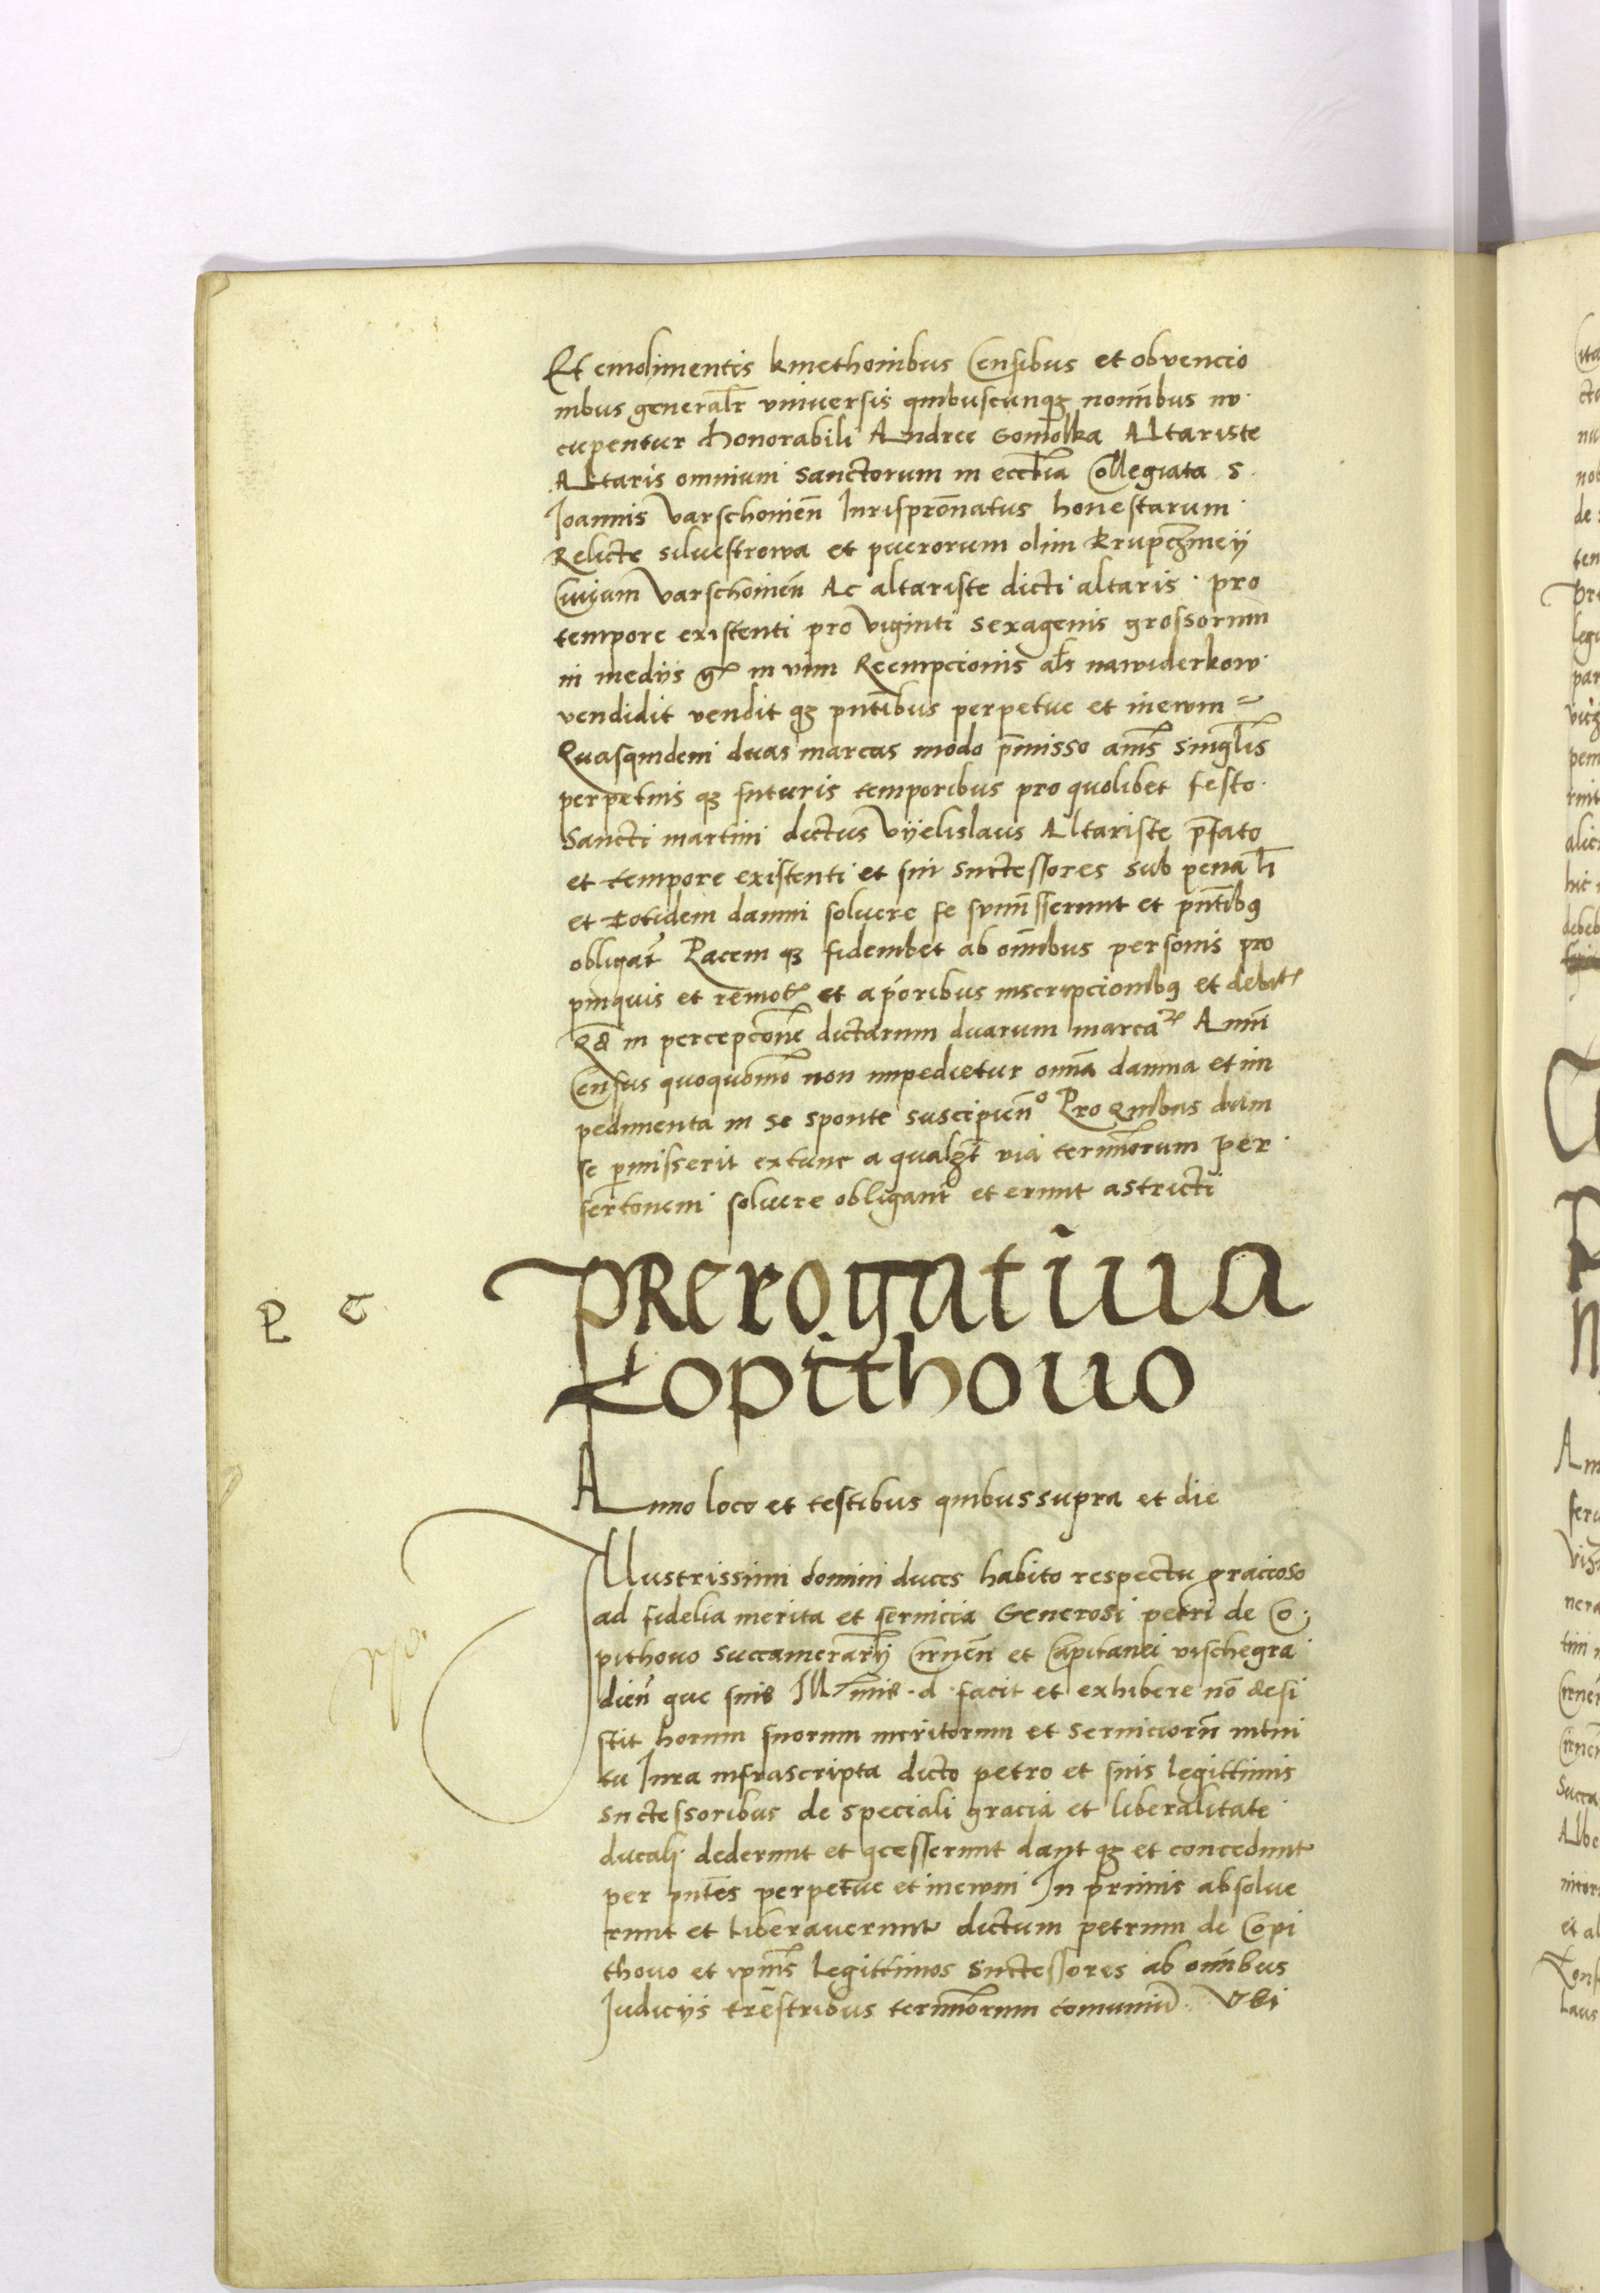 Et emolimentis kmethonibus Censibus et obvencio
nibus generalr̄ vniuersis quibuscunqꝫ nominibus nū
cupentur honorabili Andree Gomolka Altariste
Altaris omnium sanctorum in eccl̄ia Collegiata S.
Joannis Varschouien̄ Jurispr̄onatus honestarum
Relicte siluestrowa et puerorum olim Krupczmeÿ
Ciuium Varschouien̄ Ac altariste dicti altaris pro
tempore existenti pro viginti sexagenis grossorum
in mediis gͬ in vim Reempcionis al̄s nawiderkow
vendidit vendit qꝫ pn̄tibus perpetue et in ewm
Quasquidem duas marcas modo p̄misso annīs singl̄is
perpetuis qꝫ futuris temporibus pro quolibet festo
Sancti martini dictus Vÿelislaus Altariste p̄fato
et tempore existenti et sui Suctessores sub pena l̄i
et totidem damni soluere se sumīsserunt et pn̄tibꝰ
obligant̄ Pacem qꝫ fidem bet ab om̄ibus personis pro
pinquis et remotͬ et a p̄oribus inscripcionibꝰ et debitͬ
Qđ in percepcōne dictarum duarum marcaꝝ Annui
Census quoquōmō non impedietur om̄ia damna et im
pedimenta in se sponte suscipien̄º Pro quibus dum
se p̄misserit extunc a qualꝫt via termīorum per
fertonem soluere obligant̄ et erunt astricti
Prerogatiua
Copithouo
P C
Anno loco et testibus quibus supra et die
Jllustrissimi domini duces habito respectu gracioso
ad fidelia merita et seruicia Generosi petri de Co
pithouo Succamerarÿ Cirnen̄ et Capitanei vischegra
dien̄ que suis Ill̄mis d facit et exhibere nō desi
stit horum suorum meritorum et seruiciorū intui
tu Jura infrascripta dicto petro et suis legittimis
Suctessoribus de speciali gracia et liberalitate
ducali dederunt et ꝯcesserunt dant qꝫ et concedunt
per pn̄tes perpetue et in ewm Jn primis absolue
runt et liberauerunt dictum petrum de Copi
thouo et ip̄ius legittimos Suctessores ab om̄ibus
Judicÿs tr̄estribus termīorum comuniū Vbi